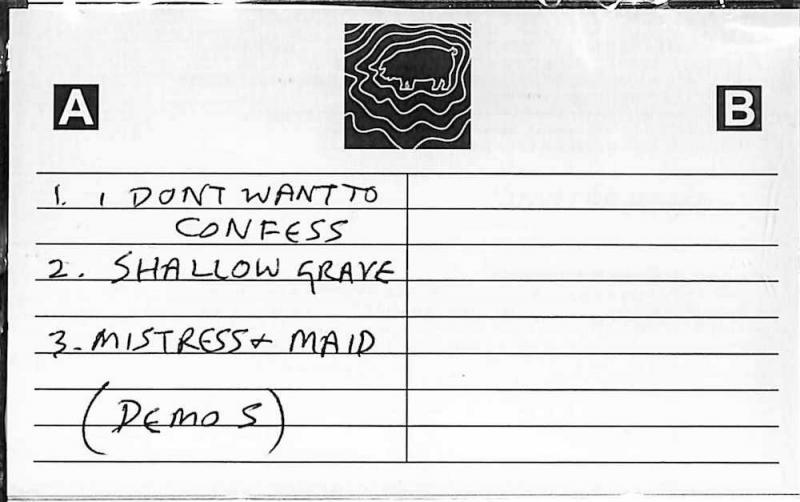 A
B
1. I DONT WANT TO
CONFESS
2. SHALLOW GRAVE
3. MISTRESS + MAID
(DEMOS)